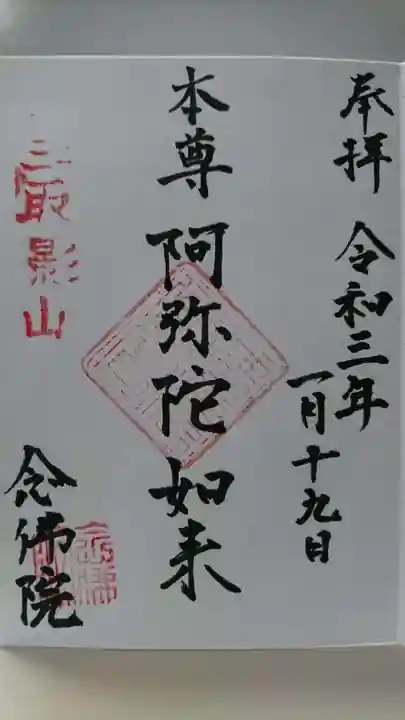 奉拝 令和三年
一月十九日
本尊 阿弥陀如来
三取影山
念佛院